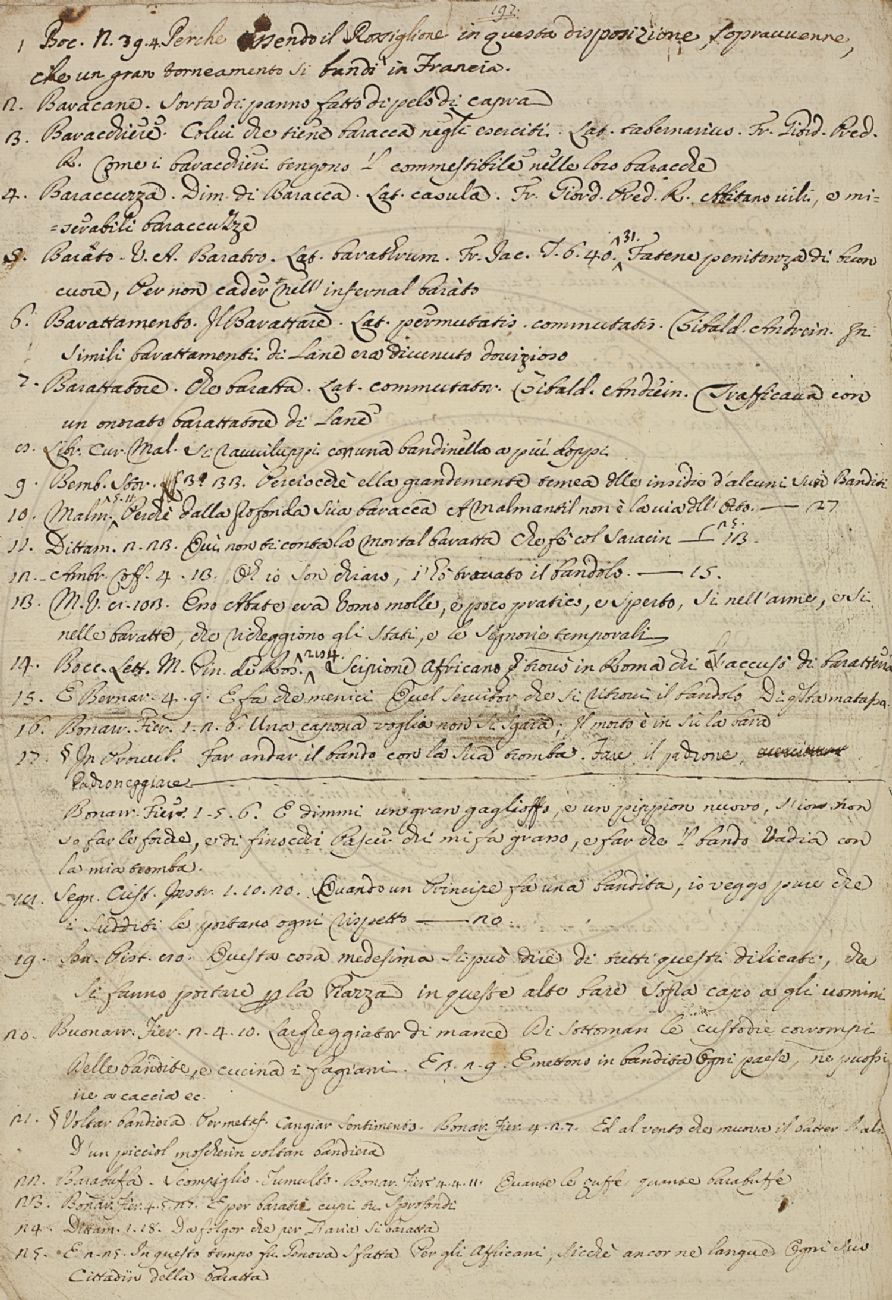 192.
1 Boc. N. 39.4 Perche essendo il Rossiglione in questa disposizione sopravvenne,
che un gran torneamento si bandì in Francia.
2. Baracane. Sorta di panno fatto di pelo di capra
3. Baracchiere. Colui che tiene baracca negli eserciti. Lat. tabernarius. Fr. Giord. Pred.
R. Come i baracchieri tengono il commestibile nelle loro baracche
4. Baraccuzza. Dim. di Baracca. Lat. casula. Fr. Giord. Pred. R. Abitano vili, e mi=
=serabili baraccuzze
5. Baràto. V. A. Baratro. Lat. barathrum. Fr. Jac. T. 6. 40. 31. Fatene penitenza di buon
cuore, Per non cader nell' infernal baràto
6. Barattamento. Il Barattare. Lat. permutatio. commutatio. Tibald. Andrein. In
simili barattamenti di Lane era divenuto dovizioso
7. Barattatore. Che baratta. Lat. commutator. Tibald. Andrein. Trafficava con
un onorato barattatore di Lane
8. Libr. Cur. Mal. Si ravviluppi con una bandinella a più doppi
9. Bemb. Stor. 3. 33. Perciocchè ella grandemente temea delle insidie d'alcuni suoi Banditi
10. Malm. 5. 11. Perchè dalla profonda sua baracca A Malmantil non è la via dell' Orto. — 27
11. Dittam. 2. 23. Qui non ti conta la mortal baratta Che fè col Saracin — 25. 13.
12. Ambr. Coff. 4. 13. Oh io son chiaro, i' hò trovato il bandolo. — 15.
13. M. V. 8. 103. Eno Abate era Uomo molle, e poco pratico, e sperto, sì nell' arme, e sì
nelle baratte, che richeggiono gli stati, e le signorie temporali
14. Bocc. Lett. M. Pin. de Ros. 284. Scipione Affricano si trovò in Roma chi l' accusò di baratteria
15. E Bernar. 4. 9. E fa che menici Quel servitor che si ritrovi il bandolo Di questa matassa.
16. Bonarr. Fier. 1. 2. 6. Una capona voglia non si sgara; Il morto è in sù la bara
17. § In Proverb. Far andar il bando con la sua tromba. Fare il padrone,
Padroneggiare
Bonarr. Fier. 1. 5. 6. E dimmi un gran gaglioffo, e un pippion nuovo, s' io non
so far le fiche, e di finocchi Pascer chi mi fa grasso, e far che 'l bando Vadia con
la mia tromba.
18. Segn. Crist. Instr. 1. 10. 20. Quando un Principe fa una bandita, io veggo pure che
i sudditi le portano ogni rispetto — 20.
19. Sen. Pist. 80. Questa cosa medesima si può dire di tutti questi dilicati, che
si fanno portare per la Piazza in queste alte bare sopra capo a gli uomini
20. Buonarr. Fier. 2. 4. 10. Largheggiator di mance Di sottoman le custodie corrompi
Delle bandite, e cucina i fagiani. E 3. 2. 9. E mettono in bandita Ogni paese, nè puossi
ire a caccia ec.
21. § Voltar bandiera. Per metaf. Cangiar sentimento. Bonar. Fier. 4. 2. 7. Ed al vento che muova il batter l' ali
D' un picciol moscherin voltan bandiera
22. Barabuffa. Scompiglio. Tumulto. Bonar. Fier. 4. 4. 11. Quante le zuffe, quante barabuffe
23. Bonar. Fier. 4. 5. 27. E per baratri cupi tu sprofondi
24. Dittam. 1. 18. Da folgor che per l' aria si baratta
25. E 2. 25. In questo tempo fu Genova sfatta Per gli Affricani, sicchè ancor ne langue Ogni suo
Cittadin della baratta